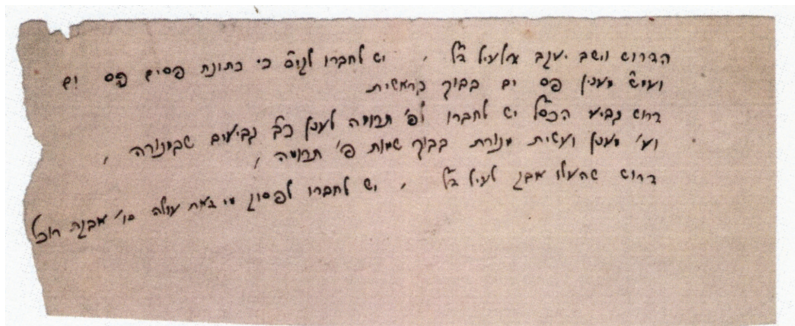 הדרוש וישב יעקב דלעיל ד"ל , יש לחברו לקיים כי כתונת פסים פס ים
ועיי"ש מענין פס ים בבוק בראשית
דרוש גביע הכסף יש לחברו לפ' תרומה לענין כ"ב גביעים שבמנורה ,
ועי' מענין ועשית מנורת בבוק שמות פ' תרומה ,
דרוש שהעלו אבק לעיל ד"ל , יש לחברו לפסוק מי זאת עולה כו' אבקת רוכל